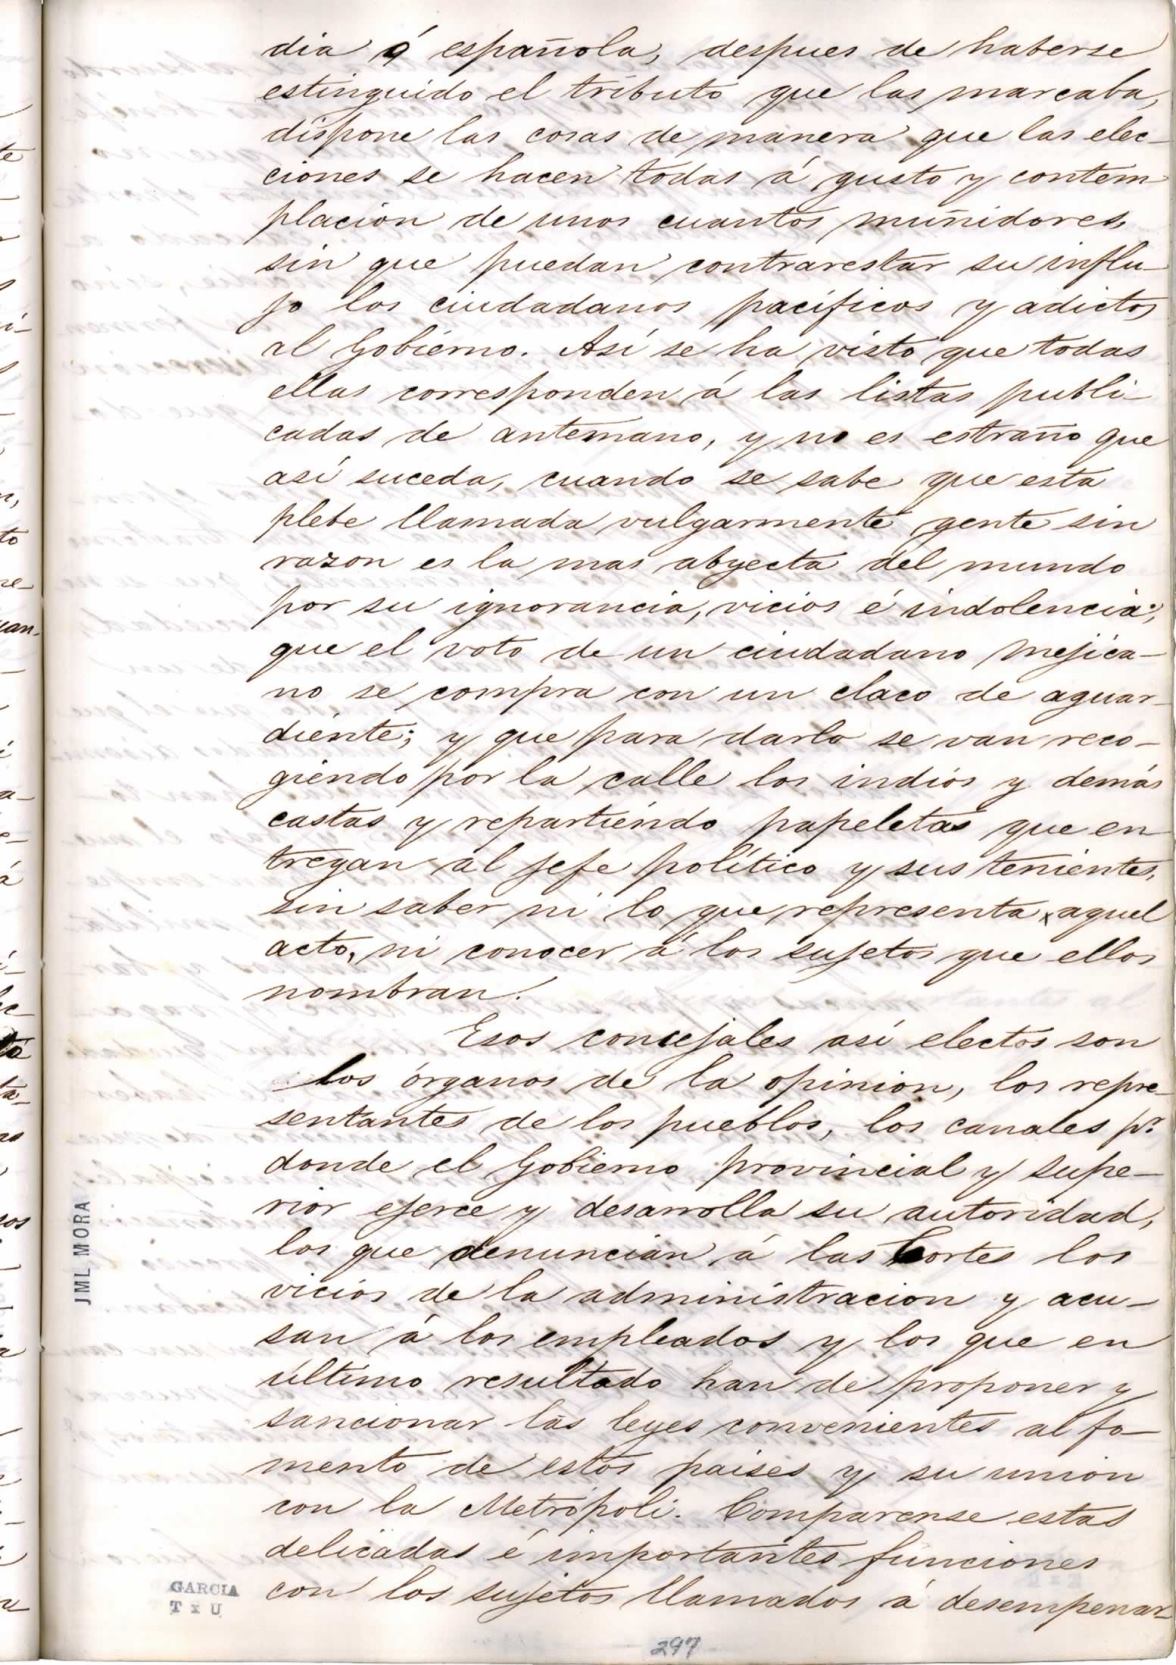 dia ó española, despues de haberse
estinguido el tributo que las marcaba,
dispone las cosas de manera que las elec-
ciones se hacen todas á gusto y contem
placion de unos cuantos muñidores,
sin que puedan contrarestar su influ-
jo los ciudadanos pacíficos y adictos
al Gobierno. Así se ha visto que todas
ellas corresponden á las listas publi-
cadas de antemano, y no es estraño que
así suceda, cuando se sabe que esta
plebe llamada vulgarmente gente sin
razon es la mas abyecta del mundo
por su ignorancia, vicios é indolencia;
que el voto de un ciudadano mejica-
no se compra con un claco de aguar-
diente; y que para darlo se van reco-
giendo por la calle los indios y demás
castas y repartiendo papeletas que en
tregan al jefe político y sus tenientes,
sin saber ni lo que representa aquel
acto, ni conocer á los sujetos que ellos
nombran.
Esos concejales así electos son
los órganos de la opinion, los repre-
sentantes de los pueblos, los canales pr.
donde el Gobierno provincial y supe-
rior ejerce y desarrolla su autoridad,
los que denuncian á las Cortes los
vicios de la administracion y acu-
san á los empleados y los que en
último resultado han de proponer y
sancionar las leyes convenientes al fo-
mento de estos paises y su union
con la Metrópoli. Comparense estas
delicadas é importantes funciones
con los sujetos llamados á desempeñar-
JML MORA
GARCIA
T x U
297